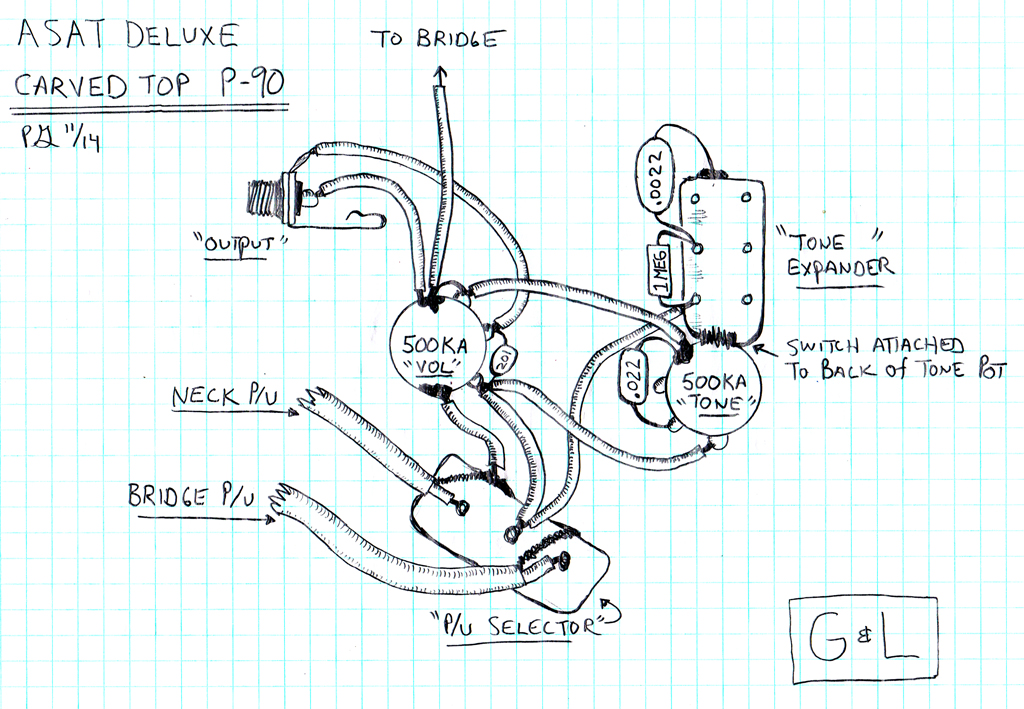 ASAT DELUXE
CARVED TOP P-90
PG 11/14
TO BRIDGE
"OUTPUT"
.0022
1 MEG
"TONE"
EXPANDER
SWITCH ATTACHED
TO BACK of TONE POT
500KA
"VOL"
.022
500KA
"TONE"
NECK P/U
BRIDGE P/U
"P/U SELECTOR"
G&L